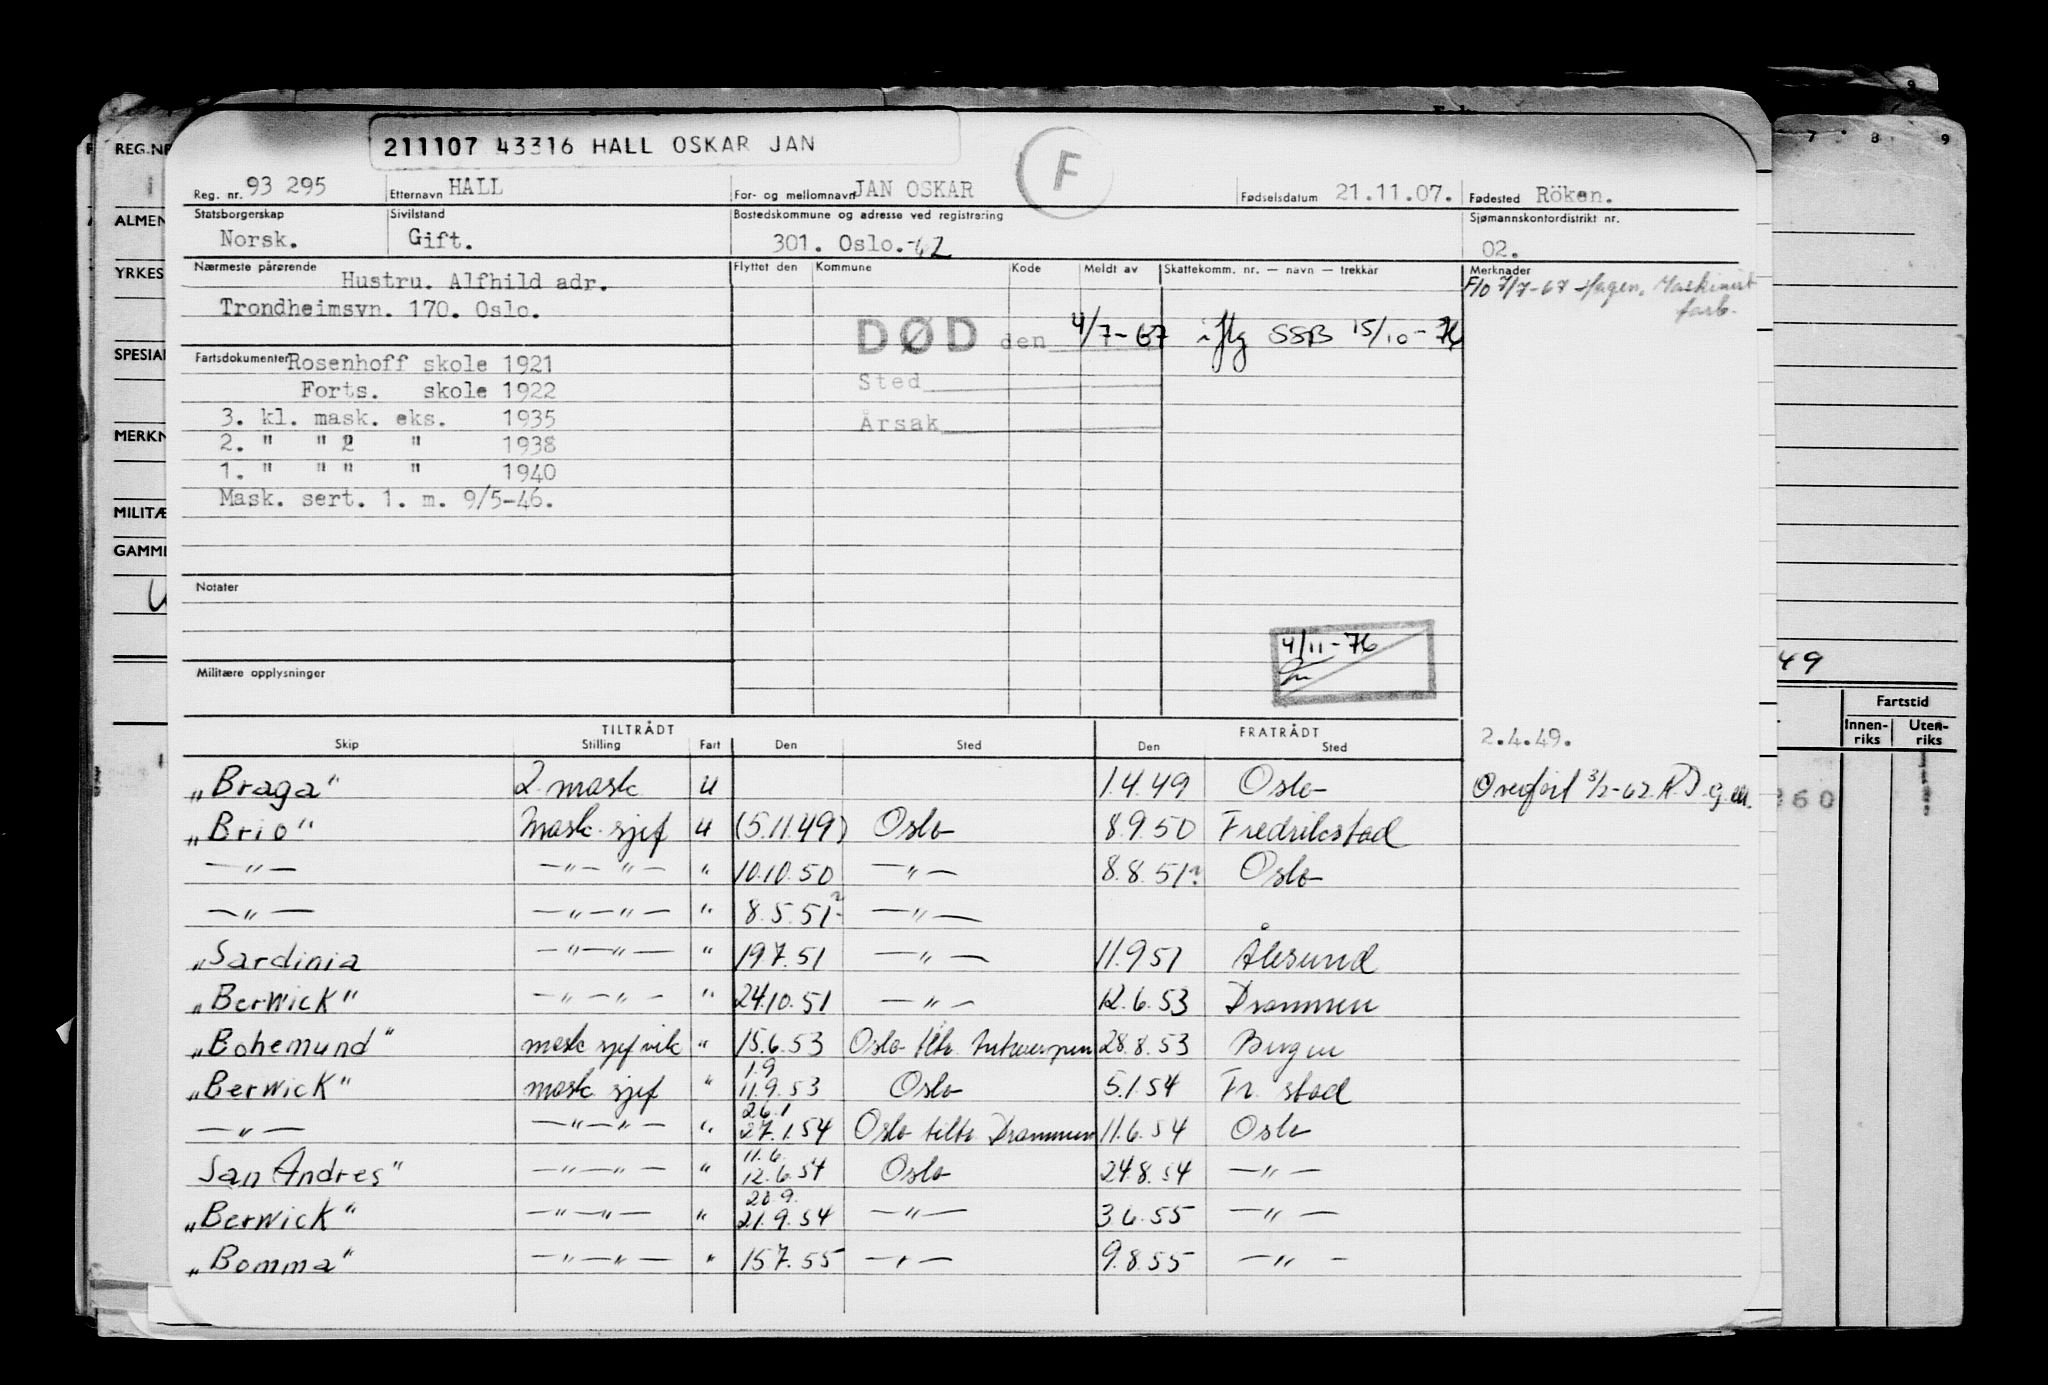 211107 43316 HALL OSKAR JAN
F
Reg. nr. 93 295 Etternavn HALL For- og mellomnavn JAN OSKAR Fødselsdatum 21.11.07. Fødested Röken.
Statsborgerskap Sivilstand Bostedskommune og adresse ved registrering Sjømannskontordistrikt nr.
Norsk. Gift. 301. Oslo.-62 02.
Nærmeste pårørende Flyttet den Kommune Kode Meldt av Skattekomm. nr. — navn — trekkår Merknader
Hustru. Alfhild adr. F/o 7/7-67 Hagen, Maskinist
Trondheimsvn. 170. Oslo. forb.
DØD den 4/7-67 iflg SSB 15/10-76
Sted
Årsak
Fartsdokumenter Rosenhoff skole 1921
Forts. skole 1922
3. kl. mask. eks. 1935
2. " " 2 " 1938
1. " " " " 1940
Mask. sert. 1. m. 9/5-46.
Notater
4/11-76
Militære opplysninger
TILTRÅDT FRATRÅDT
Skip Stilling Fart Den Sted Den Sted 2.4.49.
„Braga" 2. mask u 1.4.49 Oslo Overført 3/2-62
„Brio" Mask. sjef u (5.11.49) Oslo 8.9.50 Fredrikstad
—"— —"—"— " 10.10.50 —"— 8.8.51? Oslo
—"— —"—"— " 8.5.51? —"—
„Sardinia —"—"— " 19.7.51 —"— 11.9.51 Ålesund
„Berwick" —"—"— " 24.10.51 —"— 12.6.53 Drammen
„Bohemund" mask sjef vik " 15.6.53 Oslo tiltr. Antwerpen 28.8.53 Bergen
1.9
„Berwick" mask sjef " 11.9.53 Oslo 5.1.54 Fr. stad
26.1
—"— —"—"— " 27.1.54 Oslo tiltr. Drammen 11.6.54 Oslo
11.6.
San Andres" —"—"— " 12.6.54 Oslo 24.8.54 —"—
20.9.
„Berwick" —"—"— " 21.9.54 —"— 3.6.55 —"—
„Bomma" —"—"— " 15.7.55 —"— 9.8.55 —"—
REG.NR
ALMEN
YRKES
SPESIAL
MERKN
MILITÆ
GAMML
7 8 9
49
Fartstid
Innen-riks Uten-riks
360